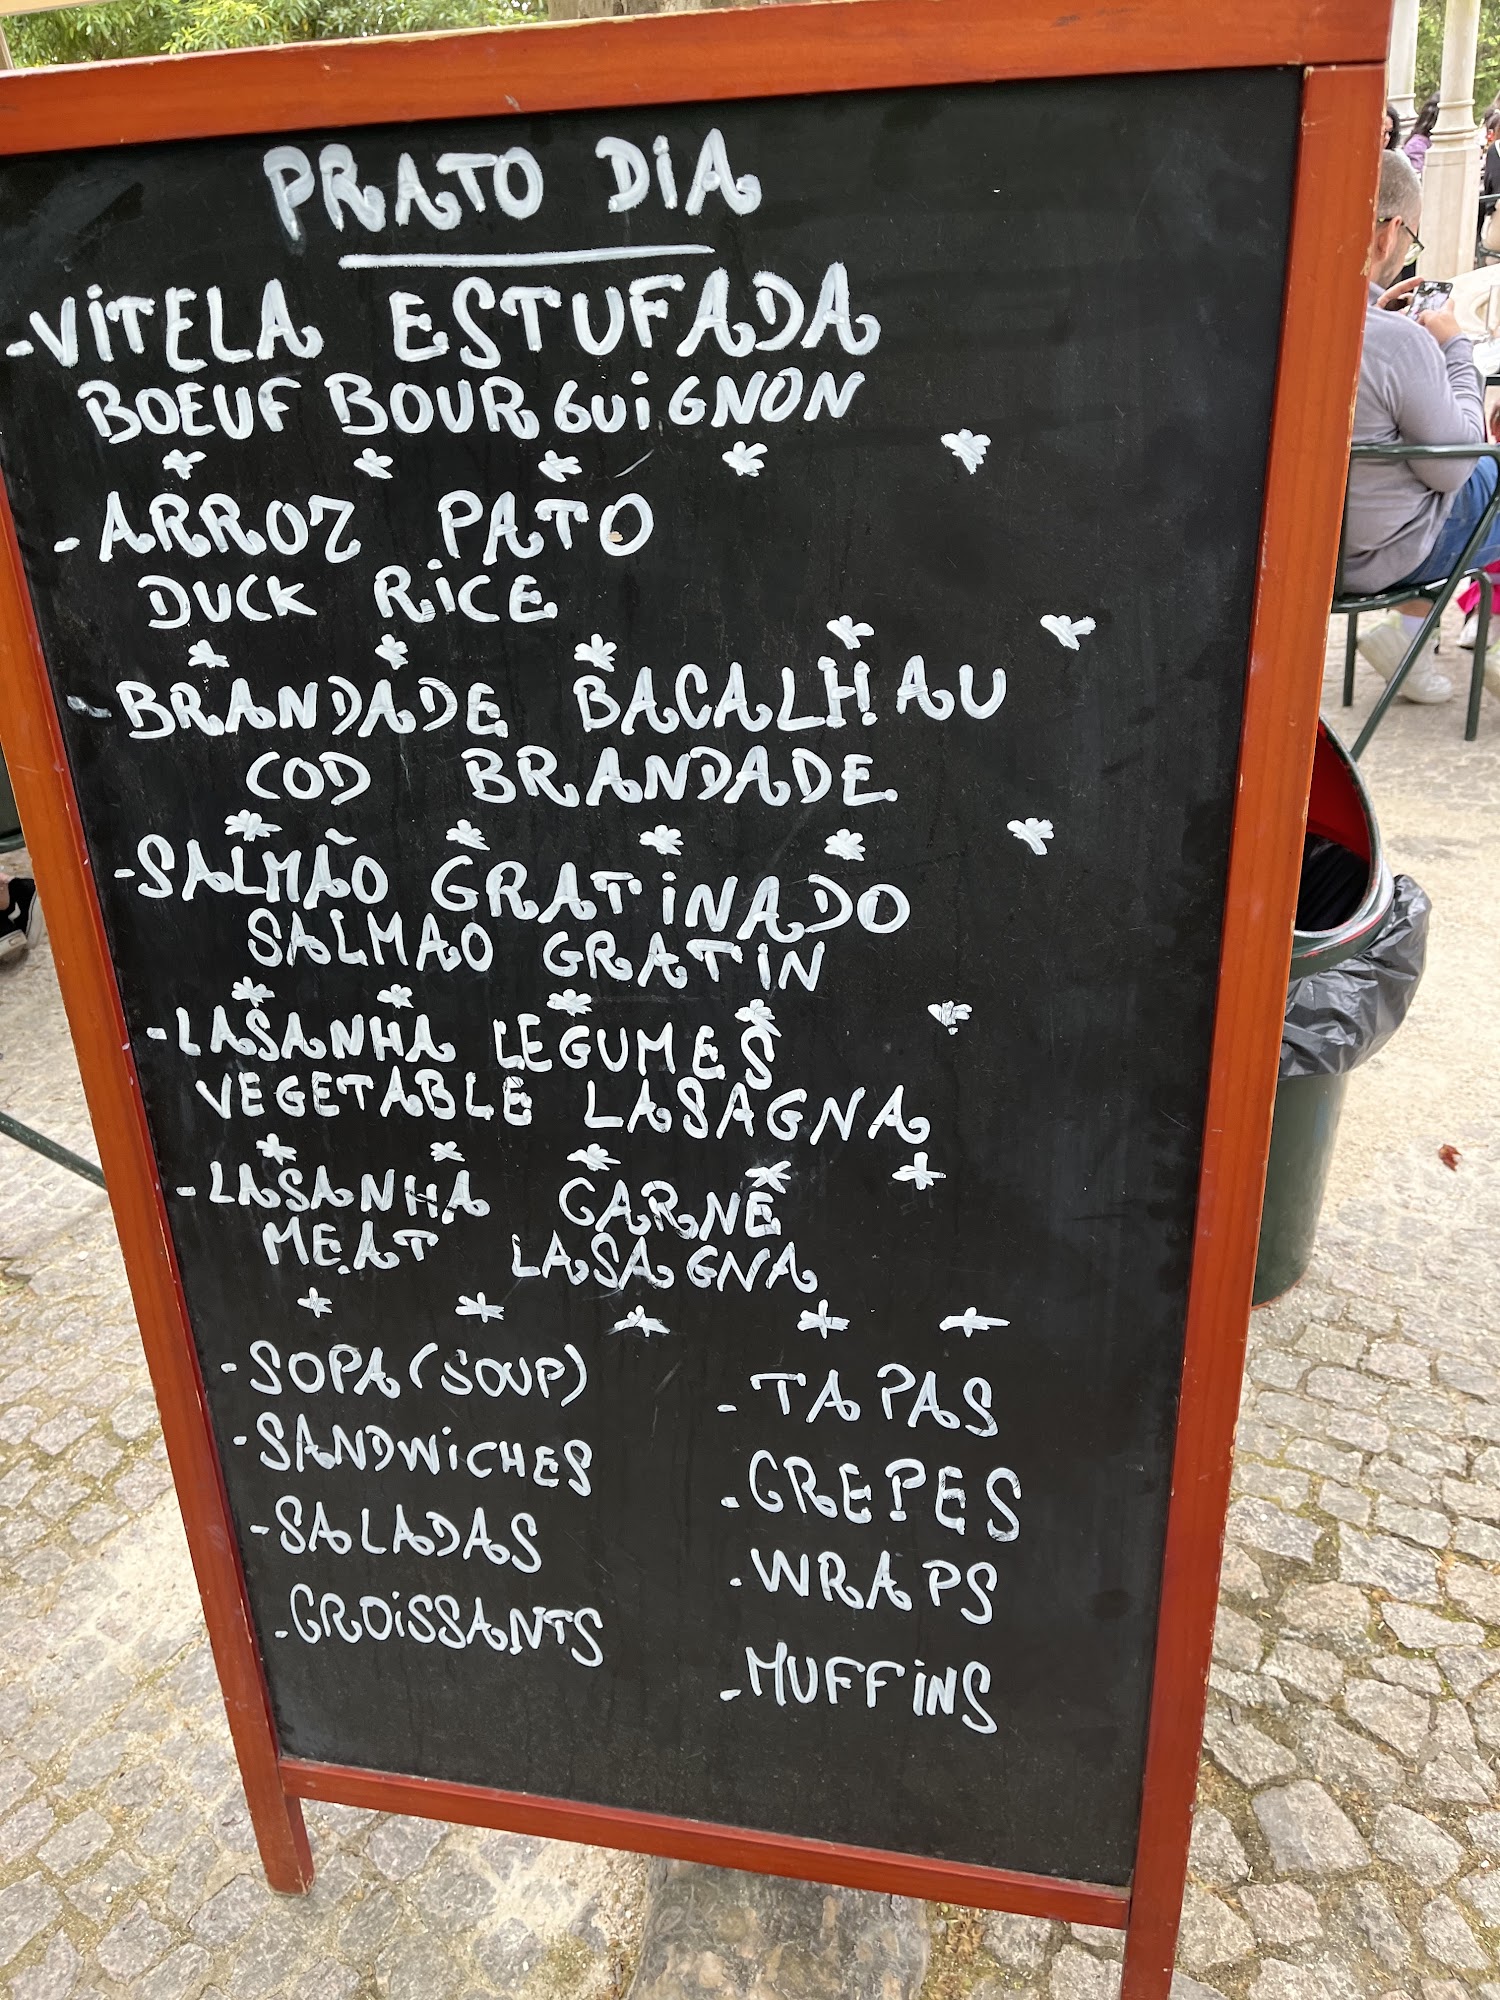 PRATO DIA
-VITELA ESTUFADA
BOEUF BOURGUIGNON
-ARROZ PATO
DUCK RICE
-BRANDADE BACALHAU
COD BRANDADE
-SALMÃO GRATINADO
SALMAO GRATIN
-LASANHA LEGUMES
VEGETABLE LASAGNA
-LASANHA CARNE
MEAT LASAGNA
-SOPA (SOUP)
-SANDWICHES
-SALADAS
-CROISSANTS
-TAPAS
-CREPES
-WRAPS
-MUFFINS